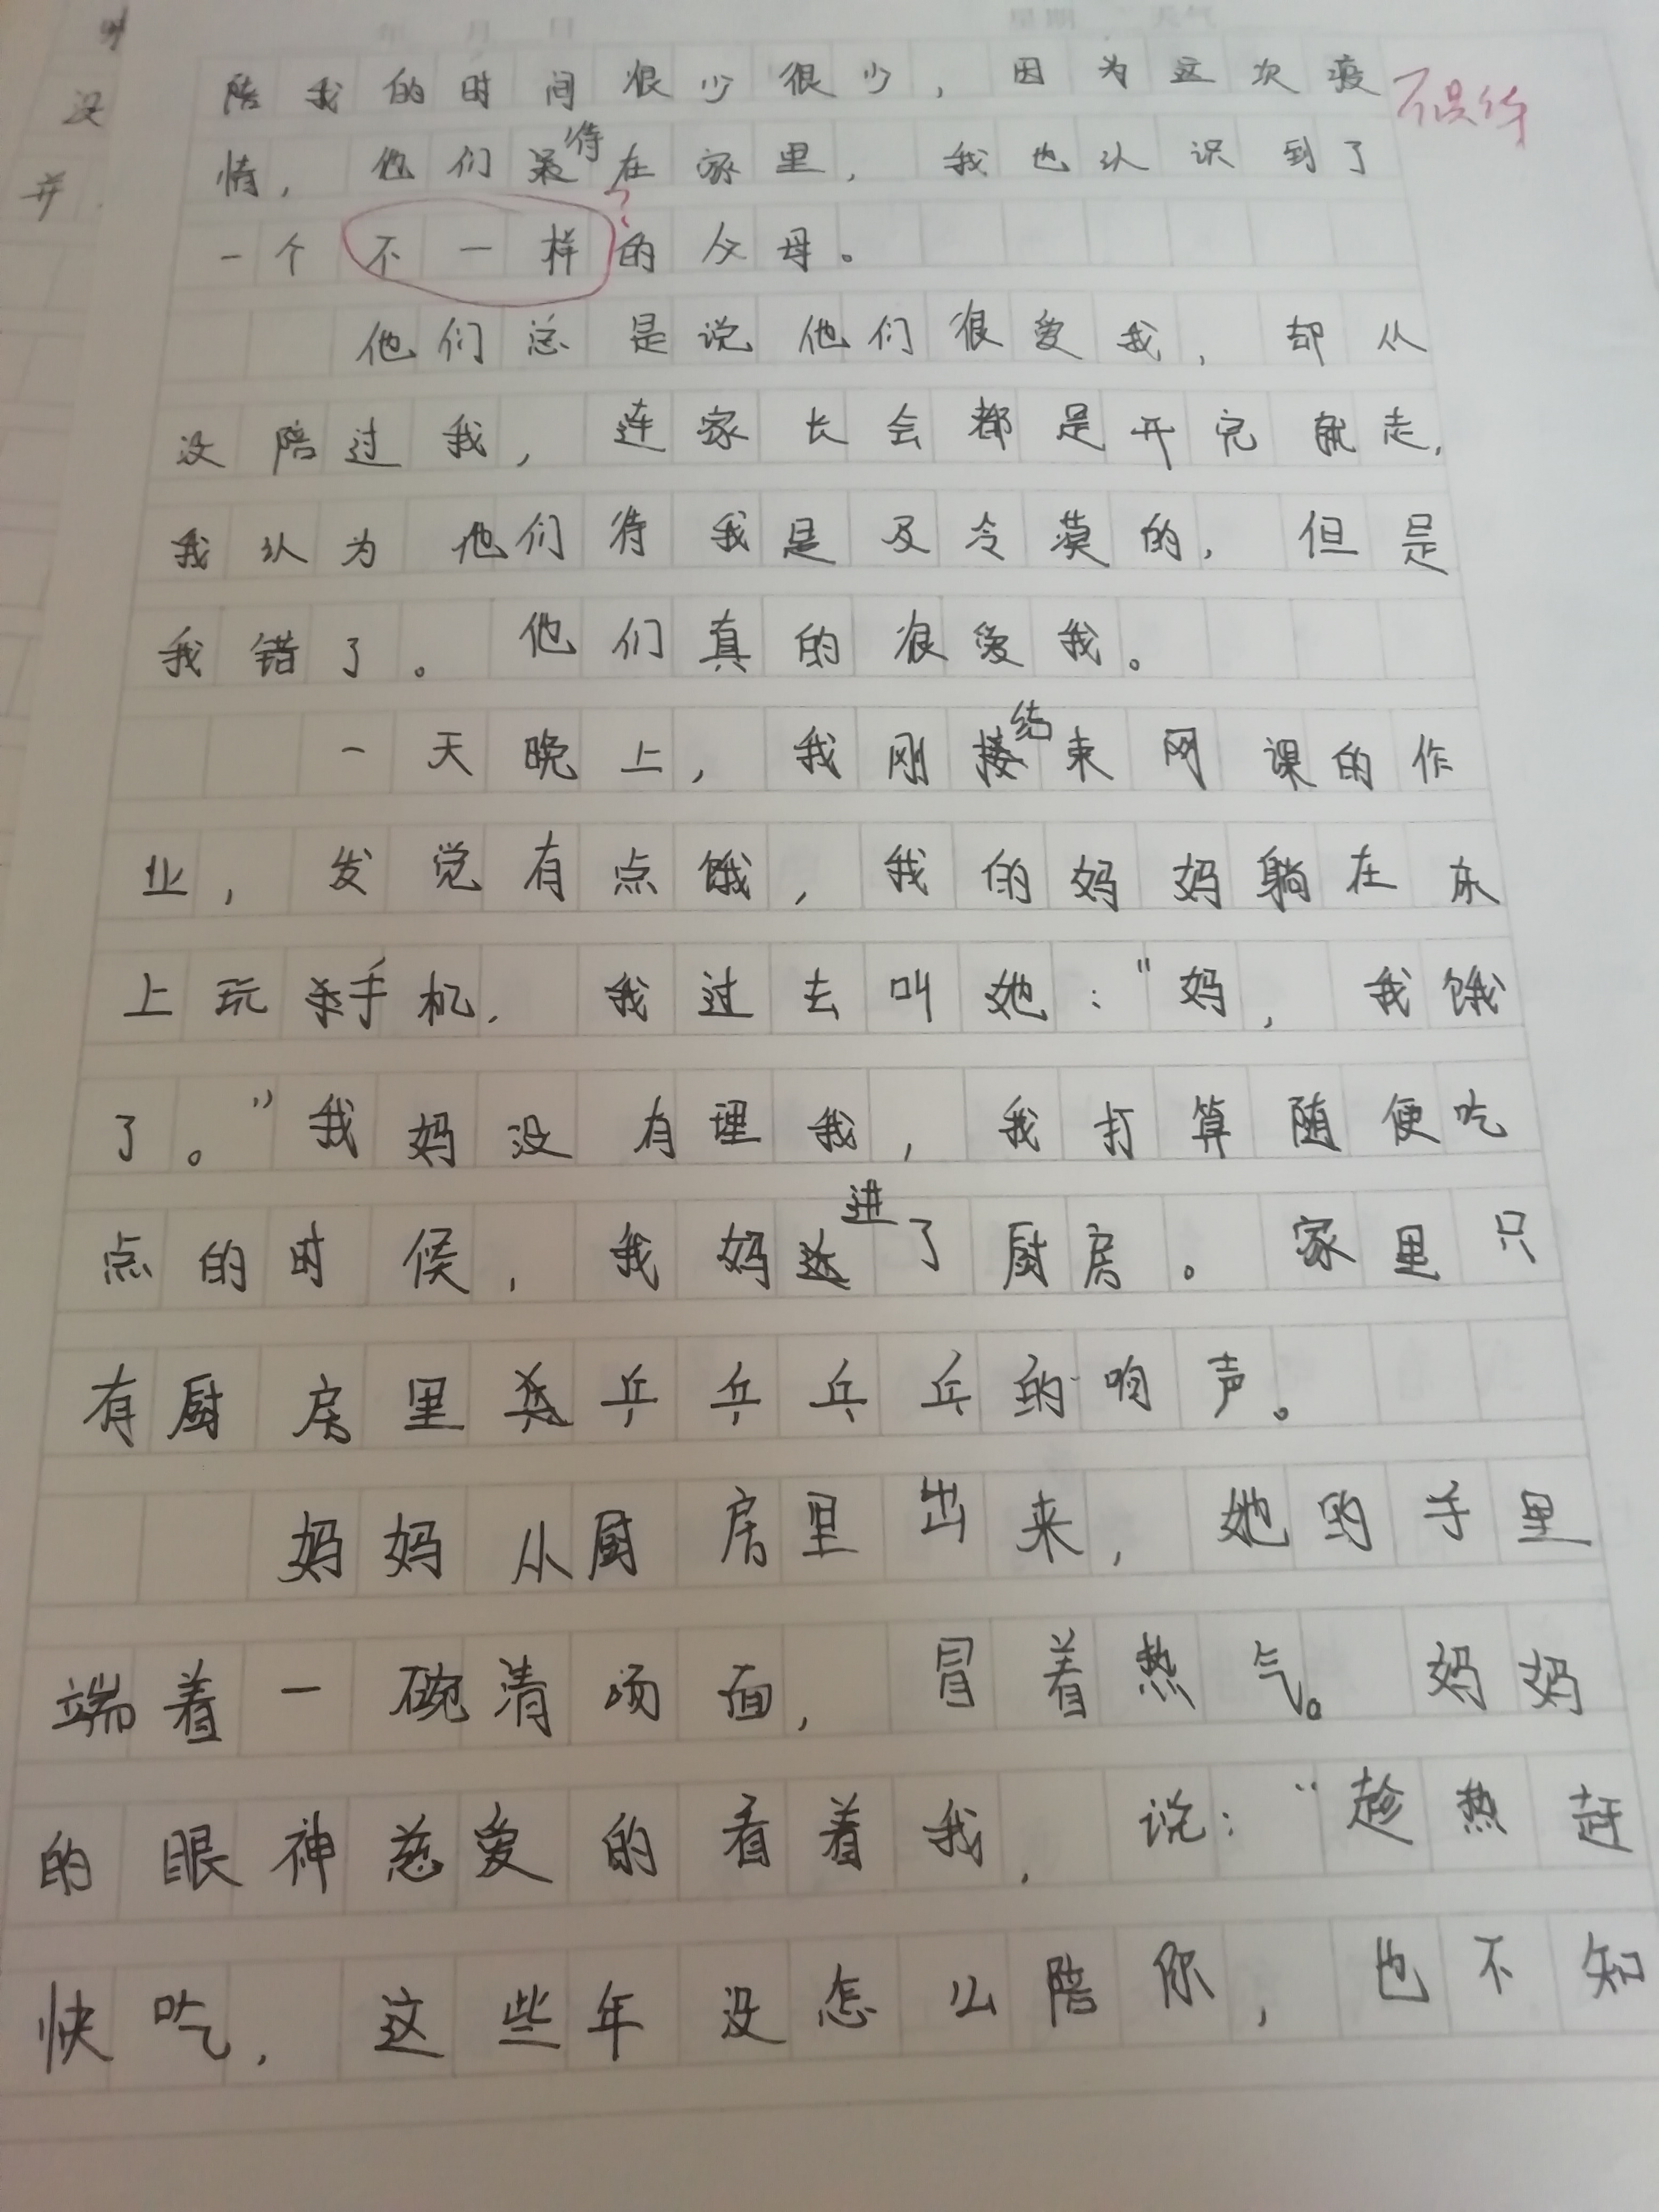 年 月 日 星期 天气
陪我的时间很少很少，因为这次疫
情，他们待在家里，我也认识到了
一个不一样的父母。
他们总是说他们很爱我，却从
没陪过我，连家长会都是开完就走，
我认为他们待我是及冷漠的，但是
我错了。他们真的很爱我。
一天晚上，我刚结束网课的作
业，发觉有点饿，我的妈妈躺在床
上玩手机，我过去叫她：“妈，我饿
了。”我妈没有理我，我打算随便吃
点的时候，我妈进了厨房。家里只
有厨房里乒乒乓乓的响声。
妈妈从厨房里出来，她的手里
端着一碗清汤面，冒着热气。妈妈
的眼神慈爱的看着我，说：“趁热赶
快吃，这些年没怎么陪你，也不知
没
并
？